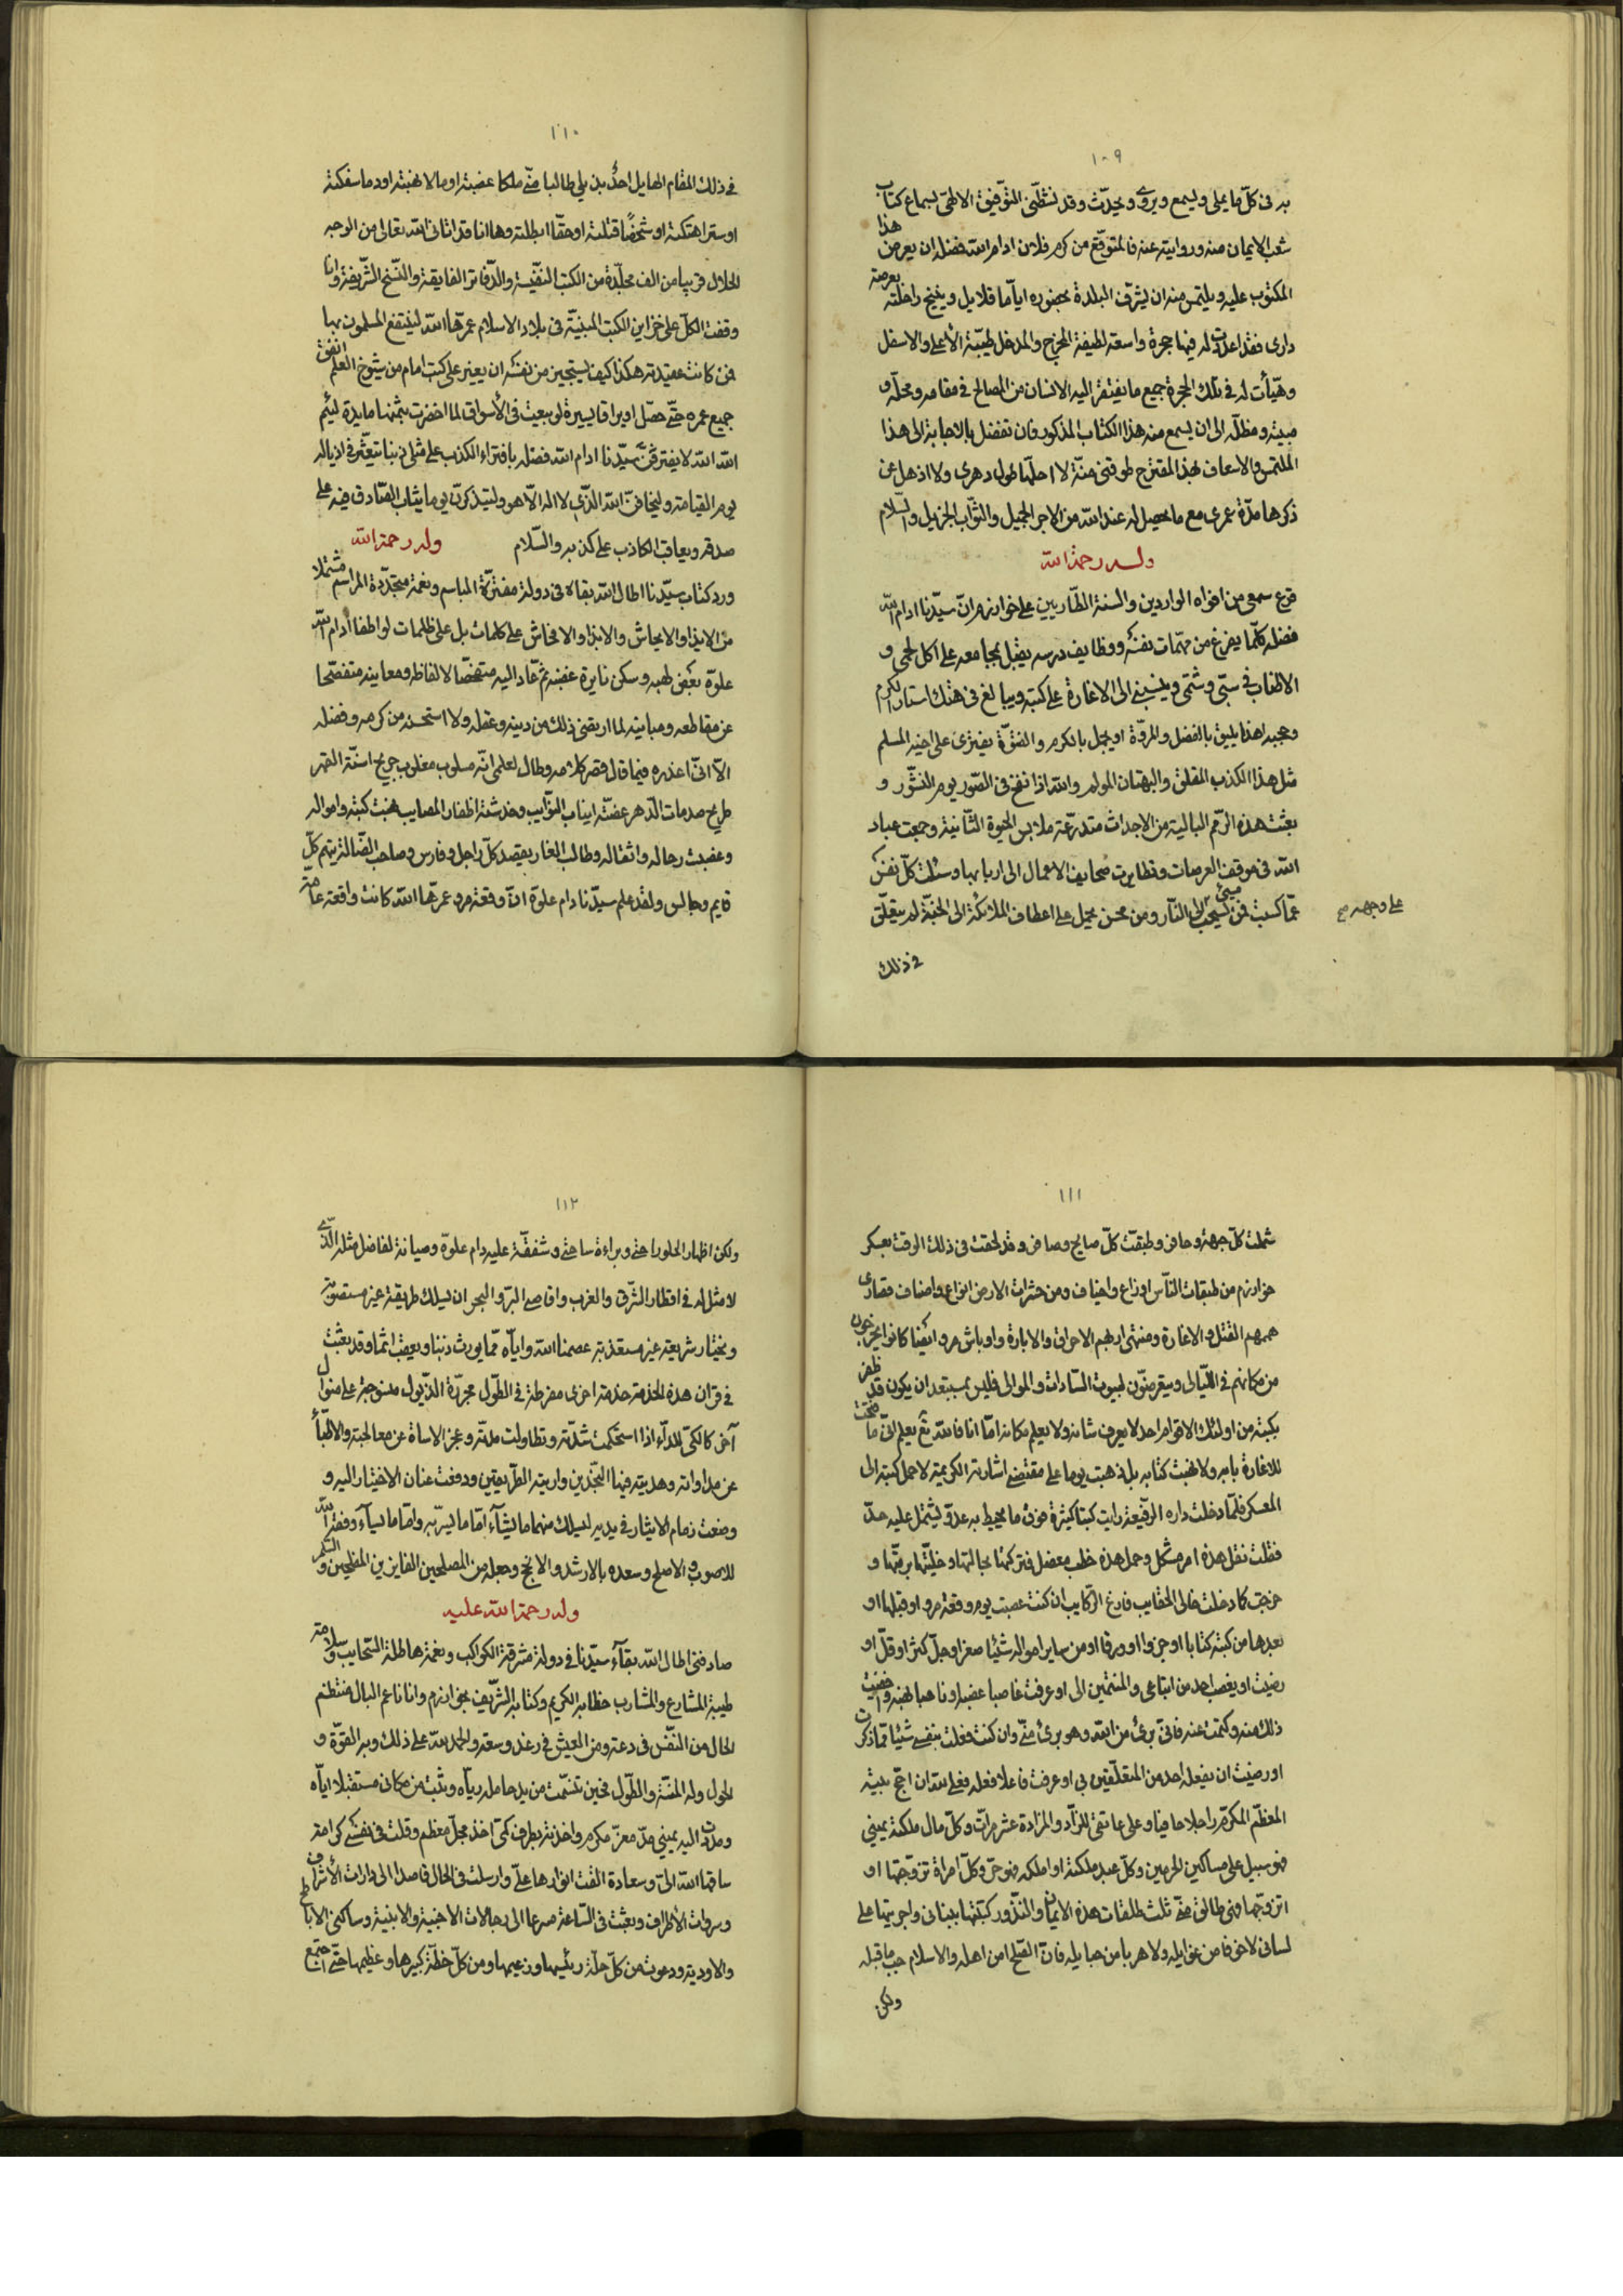 ١٠٩
به فى كلّ ما يملى ويسمع ويروى ويحدّث وقد نشطنى التوفيق الالهىّ لسماع كتاب
شعب الايمان منه وروايته عنه فالمتوقّع من كرم فلان ادام الله فضله ان يعرض هذا
المكتوب عليه ويلتمس منه ان يشرّف البلدة بحضوره ايّاما قلايل وينيخ راحلته بعرصة
دارى فقد اعددت له فيها حجرة واسعة لطيفة المخرج والمدخل طيّبة الأعلى والاسفل
وهيّأت له فى تلك الحجرة جميع ما يفتقر اليه الانسان من المصالح فى مقامه ومحلّه و
مبيته ومظلّه الى ان يسمع منه هذا الكتاب المذكور فان تفضل بالاجابة الى هذا
الملتمس والاسعاف بهذا المقترح طوقنى منّة لا احلّها طول دهرى ولا اذهل عن
ذكرها مدّة عمرى مع ما يحصل له عند الله من الاجر الجميل والثّواب الجزيل والسّلام
وله رحمة الله
قرع سمعى من افواه الواردين والسنة الطّاريين على خوارزم انّ سيّدنا ادام الله
فضله كلّما يفرغ من مهمّات نفسه ووظايف درسه يقبل بمجامعه على اكل لحمى و
الاطناب فى سبّى وشتمى وينسبنى الى الاغارة على كتبه ويبالغ فى هتك استار الكرم
وحجبه اهذا يليق بالفضل والمروّة او يجمل بالكرم والفتوّة يفترى على اخيه المسلم
مثل هذا الكذب المقلق والبهتان المولم والله اذا نفخ فى الصّور يوم النّشور و
بعثت هذه الرّمم البالية من الاجداث متدرّعة ملابس الحيوة الثّانية وجمعت عباد
الله فى موقف العرصات وتطايرت صحايف الاعمال الى اربابها وسئلت كلّ نفس
عمّا كسبت فمن مسئ يسحب الى النّار ومن محسن يحمل على اعطاف الملائكة الى الجنّة لم يتعلّق
على وجهه صح
فى ذلك
١١٠
فى ذلك المقام الهايل احدٌ بذيلى طالبا منّى ملكا غصبته او مالا نهبته او دما سفكته
او سترا هتكته او شخصًا قتلته او حقّا ابطلته وها انا قد اتانى الله تعالى من الوجه
الحلال قريبا من الف مجلّدة من الكتب النّفيسة والدّفاتر الفايقة والنّسخ الشّريفة وانا
وقفت الكلّ على خزاين الكتب المبنيّة فى بلاد الاسلام عمرّها الله لينتفع المسلمون بها
فمن كانت عقيدته هكذا كيف يستجيز من نفسه ان يغير على كتب امام من شيوخ العلم انفق
جميع عمره حتّى حصّل اوراقا يسيرة لو بيعت فى الأسواق لما احضرت بثمنها مايدة لئيم
الله الله لا يفترينّ سيّدنا ادام الله فضله بافتراء الكذب على مثلى ذنبا يتعثّر فى اذياله
يوم القيامة وليخافنّ الله الّذى لا اله الّا هو وليتذكرنّ يوما يثاب الصّادق فيه على
صدقه ويعاقب الكاذب على كذبه والسّلام وله رحمة الله
ورد كتاب سيّدنا اطال الله بقاءه فى دولة مفترّة المباسم ونعمة متجدّدة المراسم مشتملا
من الايذاء والايحاش والابذاء والافحاش على كلمات بل على ظلمات لو اطفأ أدام الله
علوّه بعض لهبه وسكن نايرة غضبه ثمّ عاد اليه متفحّصا لالفاظه ومعاينه متفصّحا
عن مقاطعه ومبانيه لما ارتضى ذلك من دينه وعقله ولا استحسنه من كرمه وفضله
الّا انّى اعذره فيما قال قصر كلامه وطال لعلمى انّه مسلوب مغلوب جريح اسنّة القهر
طريح صدمات الدّهر عضّته انياب النّوايب وخدشته اظفار المصايب نهبت كتبه وامواله
وغصبت رحاله واثقاله وطالب الغار يقصد كلّ راجل وفارس وصاحب الضّالة يتهم كلّ
قايم وجالس ولقد علم سيّدنا دام علوّه انّ وقعة مرو عمرّها الله كانت واقعة عامّة
١١١
شملت كلّ جهة وحافة وطبقت كلّ صايح وصافر وقد لحقت فى ذلك الوقت بعسكر
خوارزم من طبقات النّاس اوزاع واخياف ومن حشرات الارض انواع واصناف قصارى
هممهم القتل والاغارة ومنتهى اربهم الاحراق والابارة واوباش مرو ايضا كانوا يخرجون
من مكانهم فى اللّيالى ويتعرضون لبيوت السّادات والموالى فليس بمستبعد ان يكون قد ظفر
بكتبه من اولئك الاقوام احد لا يعرف شانه ولا يعلم مكانه امّا انا فالله تع يعلم انّى ما فتحت
للاغارة بابه ولا نهبت كتابه بل ذهبت يوما على مقتضى اشارته الكريمة لاحمل كتبه الى
المعسكر فلمّا دخلت داره الرّفيعة رايت كتبا كثيرة فوق ما يحيط به عدّ ويشتمل عليه حدّ
فقلت نقل هذه امر مشكل وحمل هذه خطب معضل فتركتها بحالتها وخلّيتها برمّتها و
خرجت كما دخلت خالى الحقايب فارغ الرّكايب ان كنت غصبت يوم وقعة مرو او قبلها او
بعدها من كتبه كتابا او جزوا او ورقا او من ساير امواله شيئا صغر او جلّ كثر او قلّ او
رضيت او يغصب احد من اتباعى والمنتمين الى او عرفت غاصبا غصبه وناهبا نهبه واخفيت
ذلك منه وكتمت عنه فانّى برئ من الله وهو برئ منّى وان كنت فعلت بنفسى شيئا ممّا ذكرت
او رضيت ان يفعله احد من المتعلّقين بى او عرفت فاعلا فعله فعلى لله ان احجّ بيته
المعظّم المكرّم راجلا حافيا وعلى عاتقى للزّاد والمزادة عشر مرّات وكلّ مال ملكته يمينى
فهو سبيل على مساكين الحرمين وكلّ عبد ملكته او املكه فهو حرّ وكلّ امراة تزوّجتها او
اتزوّجها فهى طالق منّى ثلث طلقات هذه الايمان والنّذور كتبتها ببنانى واجريتها على
لسانى لا خوفا من غوايله ولا هربا من حبايله فانّ القبلح امن اهله والاسلام جبّ ما قبله
ولكن
١١٢
ولكن اظهارا لخلوّ راحتى وبراءة ساحتى وشفقّة عليه دام علوّه وصيانة لفاضل مثله الّذى
لا مثل له فى اقطار الشّرق والغرب واقاصى البرّ والبحر ان يسلك طريقة غير مستصوبة
ويختار شريعة غير مستعذبة عصمنا الله وايّاه ممّا يورث ذنبا ويعقب اثما وقد بعثت
فى قران هذه الخدمة خدمة اخرى مفرطة فى الطّول مجرّدة الذّيول منسوجة على منوال
آخر كالكىّ للدآء اذا استحكمت شدّته وتطاولت مدّته وعجز الاساة عن معالجته والاطبّاء
عن مداواته وهديته فيها النّجدين واريته الطّريقتين ودفعت عنان الاختيار اليه و
وضعت زمام الايثار فى يديه ليسلك منهما ما يشآء امّا ما يسرّ به وامّا ما يسآء وفقه الله
للاصوب والاصلح وسعده بالارشد والانجح وجعله من المصلحين الفايزين المفلحين والسّلم
وله رحمة الله عليه
صادفنى اطال الله بقآء سيّدنا فى دولة مشرقة الكواكب ونعمة هاطلة السّحايب وسلامة
طيبة المشارع والمشارب خطابه الكريم وكتابه الشّريف بخوارزم وانا ناعم البال منتظم
الحال من النّفس فى دعة ومن العيش فى رغد وسعة والحمد لله على ذلك وبه القوّة و
الحول وله المنّة والطّول فحين تنسّمت من يد حامله ريّاه وثبت من مكانى مستقبلا ايّاه
ومددت اليه يمينى مدّ معزّ مكرم واخذته بطرف كمّى اخذ مجلّ معظم وقلت فى نفسى كرامة
ساقها الله الىّ وسعادة القت انوارها علىّ وارسلت فى الحال قاصدا الى دارات الأشراف
وسروات الأطراف وبعثت فى السّاعة مسرعا الى رجالات الاخبية والابنية وساكنى الاباطح
والاودية ودعوت من كلّ حلّة رئيسها وزعيمها ومن كلّ خطّة كبيرها وعظيمها حتّى اجتمع